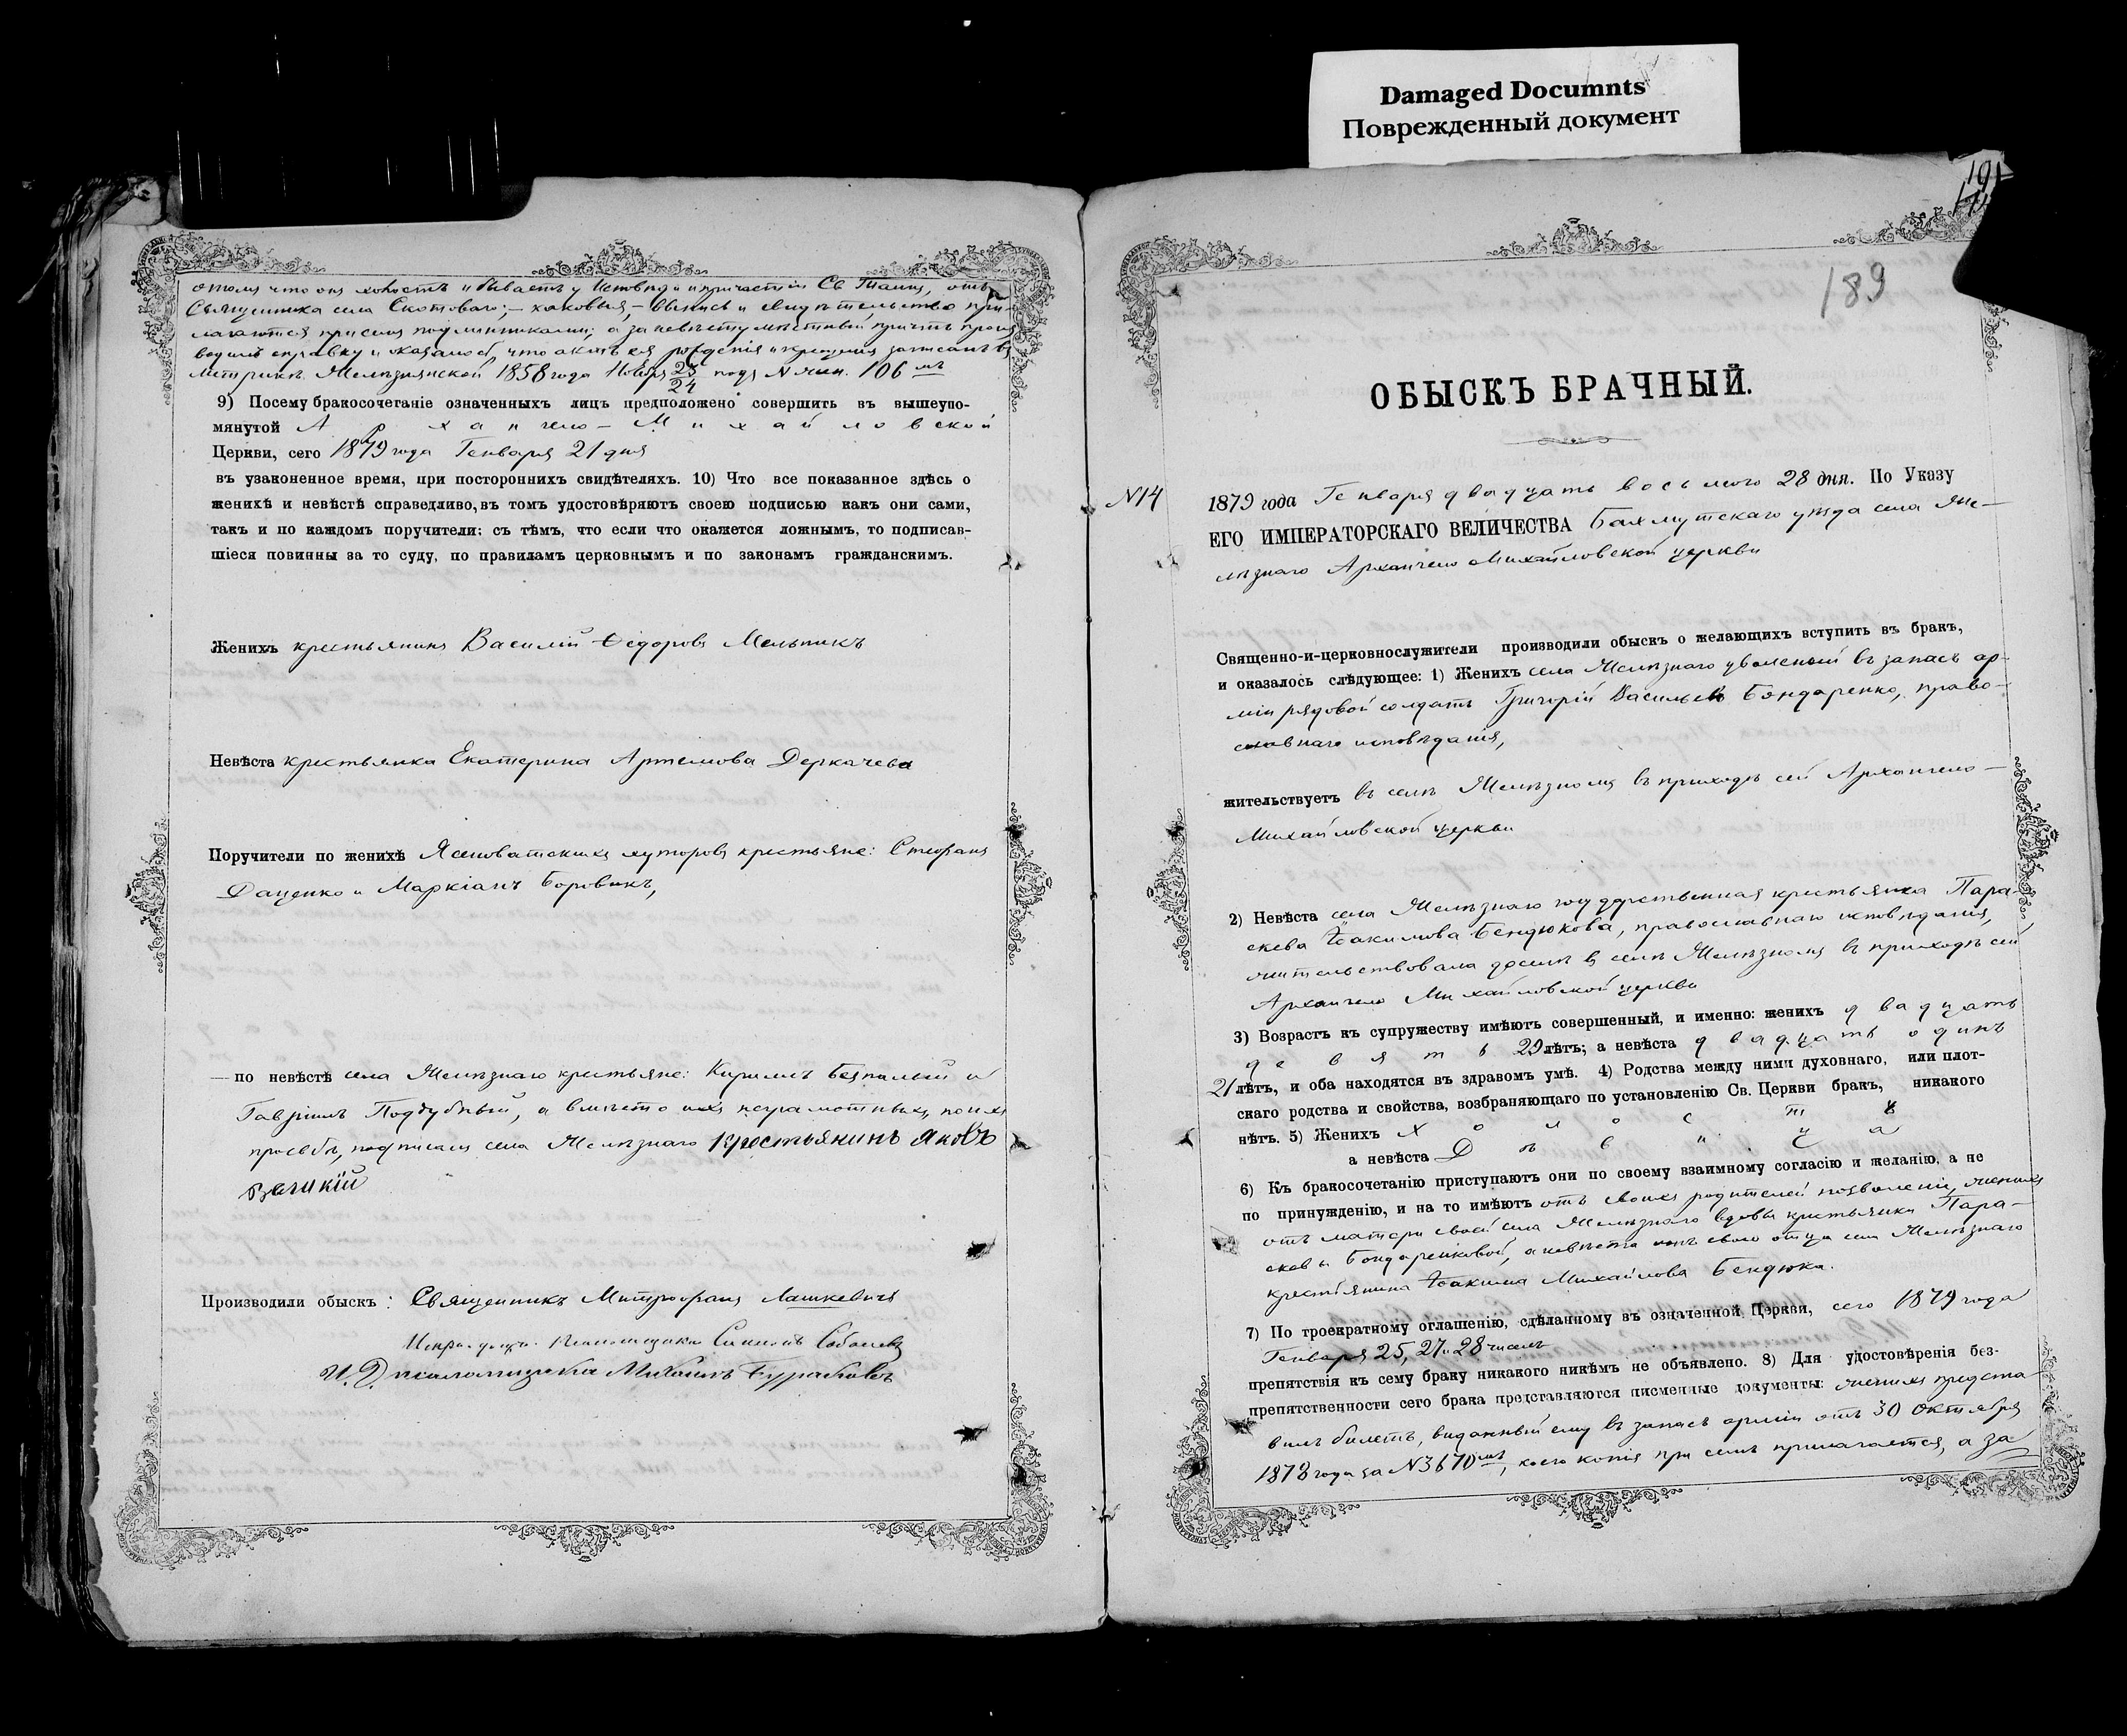 Damaged Documnts
Поврежденный документ
о томъ что онъ холостъ и бываетъ у Исповѣди и причастія Св. Таинъ, отъ
Священника села Скотоватаго; – каковыя, – выпись и свидѣтельство при-
лагаются при семъ подлинниками; а за невѣсту мѣстный причтъ произ
водилъ справку и оказалось, что актъ ея рожденія и крещенія записанъ въ
метрикѣ Желѣзнянской 1858 года Ноября 25/24 подъ № жен. 106мъ
9) Посему бракосочетаніе означенныхъ лицъ предположено совершить въ вышеупо-
мянутой Архангело-Михайловской
Церкви, сего 1879 года Генваря 21 дня
въ узаконенное время, при постороннихъ свидѣтеляхъ. 10) Что все показанное здѣсь о
женихѣ и невѣстѣ справедливо, въ томъ удостовѣряютъ своею подписью какъ они сами,
такъ и по каждомъ поручители: съ тѣмъ, что если что окажется ложнымъ, то подписав-
шіеся повинны за то суду, по правиламъ церковнымъ и по законамъ гражданскимъ.
Женихъ крестьянинъ Василій Ѳедоровъ Мельникъ
Невѣста крестьянка Екатерина Артемова Деркачева
Поручители по женихѣ Ясиноватскихъ хуторовъ крестьяне: Стефанъ
Даценко и Маркіанъ Боровикъ,
— по невѣстѣ села Желѣзнаго крестьяне: Кирилъ Безпалый и
Гавріилъ Поддубный, а вмѣсто ихъ неграмотныхъ, по ихъ
просьбѣ, подписалъ села Желѣзнаго крестьянинъ Яковъ
Великій
Производили обыскъ: Священникъ Митрофанъ Лашкевичъ
Псаломщикъ Симеонъ Соболевъ
И. Д. псаломщика Михаилъ
191
189
ОБЫСКЪ БРАЧНЫЙ.
№14
1879 года Генваря двадцать восьмого 28 дня. По Указу
ЕГО ИМПЕРАТОРСКАГО ВЕЛИЧЕСТВА Бахмутскаго уѣзда села Же-
лѣзнаго Архангело Михайловской церкви
Священно-и-церковнослужители производили обыскъ о желающихъ вступить въ бракъ,
и оказалось слѣдующее: 1) Женихъ села Желѣзнаго уволенный въ запасъ ар-
міи рядовой солдатъ Григорій Васильевъ Бондаренко, право-
славнаго исповѣданія,
жительствуетъ въ селѣ Желѣзномъ въ приходѣ сей Архангело-
Михайловской церкви
2) Невѣста села Желѣзнаго государственная крестьянка Пара-
скева Іоакимова Бендюкова, православнаго исповѣданія,
жительствовала доселѣ въ селѣ Желѣзномъ въ приходѣ сей
Архангело Михайловской церкви
3) Возрастъ къ супружеству имѣютъ совершенный, и именно: женихъ двадцать
девять 29 лѣтъ; а невѣста двадцать одинъ
21 лѣтъ, и оба находятся въ здравомъ умѣ. 4) Родства между ними духовнаго, или плот-
скаго родства и свойства, возбраняющаго по установленію Св. Церкви бракъ, никакого
нѣтъ. 5) Женихъ Холостъ
а невѣста Дѣвица
6) Къ бракосочетанію приступаютъ они по своему взаимному согласію и желанію, а не
по принужденію, и на то имѣютъ отъ своихъ родителей позволеніе, женихъ
отъ матери своей села Желѣзнаго вдовы крестьянки Пара-
скевы Бондаренковой, а невѣста отъ своего отца села Желѣзнаго
крестьянина Іоакима Михайлова Бендюка.
7) По троекратному оглашенію, сдѣланному въ означенной Церкви, сего 1879 года
Генваря 25, 27 и 28 чиселъ
препятствія къ сему браку никакого никѣмъ не объявлено. 8) Для удостовѣренія без-
препятственности сего брака представляются писменные документы: женихъ предста-
вилъ билетъ, выданный ему въ запасъ арміи отъ 30 Октября
1878 года за №3670мъ, коего копія при семъ прилагается, а за